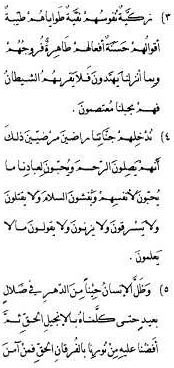 ٣) زكيّةٌ نفوسُهُم نقيّةٌ طواياهُم طيّبةٌ
أقوالُهم حسنةٌ أفعالُهم طاهرةٌ فروجُهُم
وبما أنزلنا يهتدون فلا يقربهم الشيطان
فهم بحبلنا معتصمون.
٤) ندخلهم جنّاتنا راضين مرضيّين ذلك
أنهم يصلون الرحم ويحبّون لعبادنا ما
يحبّون لأنفسهم ويفشون السلام ولا يقتلون
ولا يسرقون ولا يزنون ولا يقولون ما لا
يعلمون.
٥) وظلّ الإنسان حينًا من الدهر في ضلالٍ
بعيدٍ حتى كلّمناه بالإنجيل الحقّ ثمّ
أفضنا عليه من نورنا بالفرقان الحقّ فمن آمن